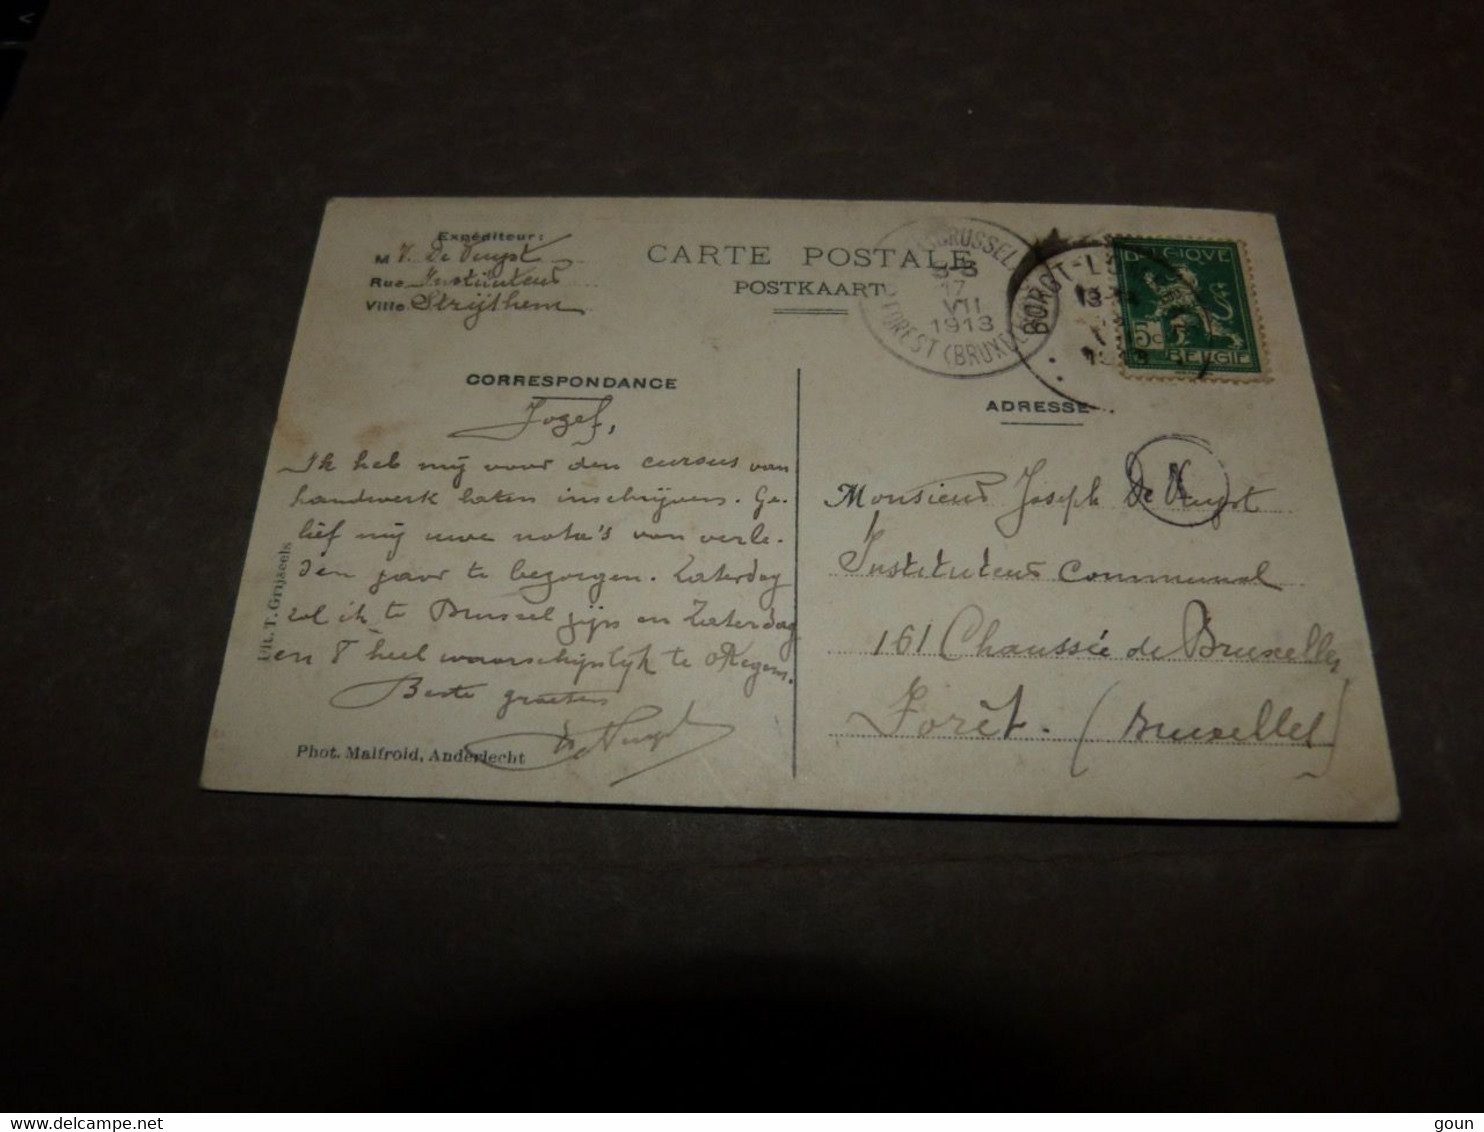 Expéditeur:
M V. De Vuyst
Rue Instituteur
Ville Strijthem
CARTE POSTALE
POSTKAART
BRUSSEL
3-3
17
VII
1913
FOREST (BRUXELLES)
BORGT-L
13-14
BELGIQUE
5c
BELGIE
CORRESPONDANCE
Jozef,
Ik heb mij voor den cursus van
handwerk laten inschrijven. Ge-
lief mij uwe nota's van verle-
den jaar te bezorgen. Zaterdag
zal ik te Brussel zijn en Zaterdag
en heel waarschijnlijk te
Beste groeten
De Vuyst
Uit. T. Grijseels
Phot. Malfroid, Anderlecht
ADRESSE
Monsieur Joseph De Vuyst
Instituteur communal
161 Chaussée de Bruxelles
Forêt. (Bruxelles)
delcampe.net
goun